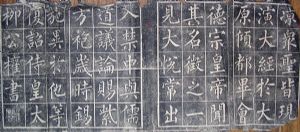 衆聖皆現
演大經於太
原傾都畢會
德宗皇帝聞
其名徵之一
見大悅常出
入禁中與儒
道議論賜紫
方袍歲時錫
施異於他等
復詔侍皇太
柳公權書